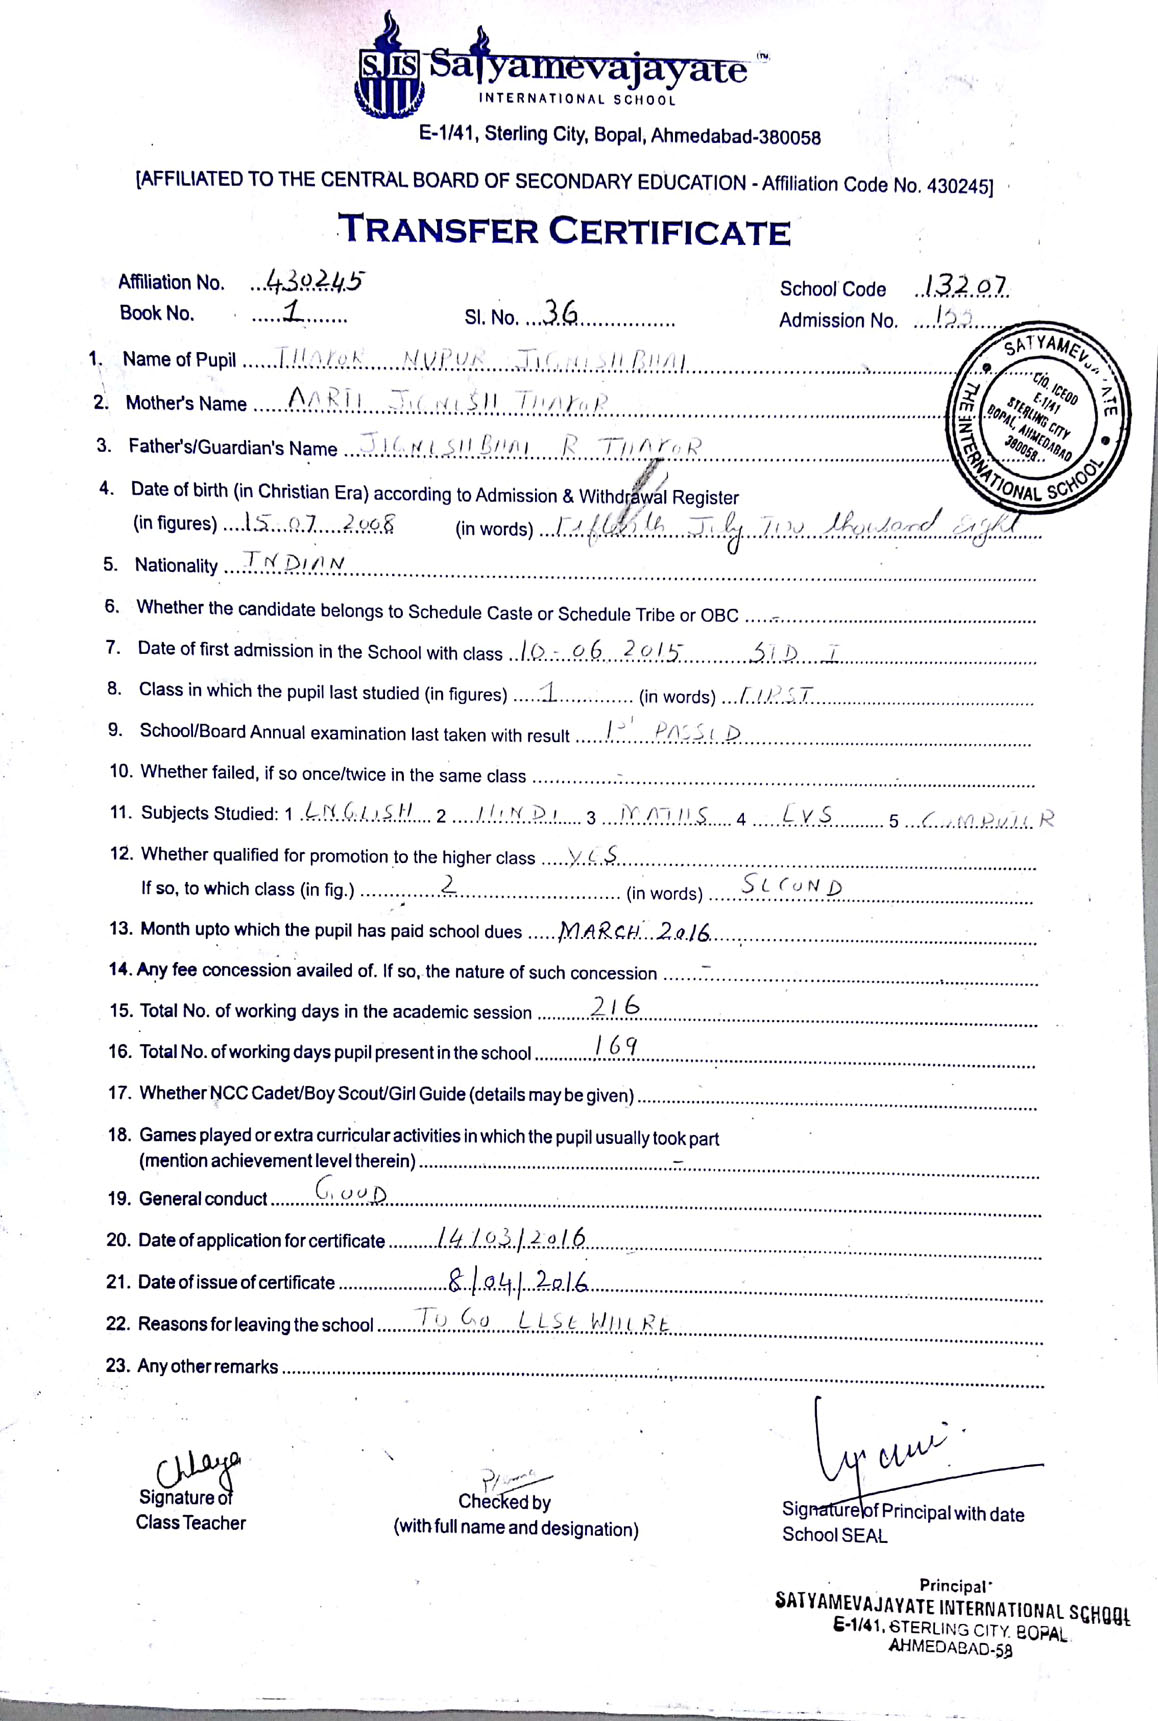 SIS Satyamevajayate TM
INTERNATIONAL SCHOOL
E-1/41, Sterling City, Bopal, Ahmedabad-380058
[AFFILIATED TO THE CENTRAL BOARD OF SECONDARY EDUCATION - Affiliation Code No. 430245]
TRANSFER CERTIFICATE
Affiliation No. 430245 School Code 13207
Book No. 1 Sl. No. 36 Admission No.
1. Name of Pupil THAKOR NUPUR JIGNISHBHAI
2. Mother's Name AARTI JIGNISH THAKOR
3. Father's/Guardian's Name JIGNISHBHAI R THAKOR
4. Date of birth (in Christian Era) according to Admission & Withdrawal Register
(in figures) 15.07.2008 (in words) Fifteenth July Two thousand Eight
5. Nationality INDIAN
6. Whether the candidate belongs to Schedule Caste or Schedule Tribe or OBC -
7. Date of first admission in the School with class 10-06 2015 STD I
8. Class in which the pupil last studied (in figures) 1 (in words) FIRST
9. School/Board Annual examination last taken with result 1st PASSED
10. Whether failed, if so once/twice in the same class -
11. Subjects Studied: 1 ENGLISH 2 HINDI 3 MATHS 4 EVS 5 COMPUTER
12. Whether qualified for promotion to the higher class YES
If so, to which class (in fig.) 2 (in words) SECOND
13. Month upto which the pupil has paid school dues MARCH 2016
14. Any fee concession availed of. If so, the nature of such concession -
15. Total No. of working days in the academic session 216
16. Total No. of working days pupil present in the school 169
17. Whether NCC Cadet/Boy Scout/Girl Guide (details may be given)
18. Games played or extra curricular activities in which the pupil usually took part
(mention achievement level therein) -
19. General conduct GOOD
20. Date of application for certificate 14/03/2016
21. Date of issue of certificate 8/04/2016
22. Reasons for leaving the school TO GO ELSEWHERE
23. Any other remarks
SATYAMEVAJAYATE
THE INTERNATIONAL SCHOOL
C/O. ICEOD
E-1/41
STERLING CITY
BOPAL, AHMEDABAD
380058
Chhaya
Signature of
Class Teacher
Checked by
(with full name and designation)
Signature of Principal with date
School SEAL
Principal
SATYAMEVAJAYATE INTERNATIONAL SCHOOL
E-1/41, STERLING CITY. BOPAL
AHMEDABAD-58